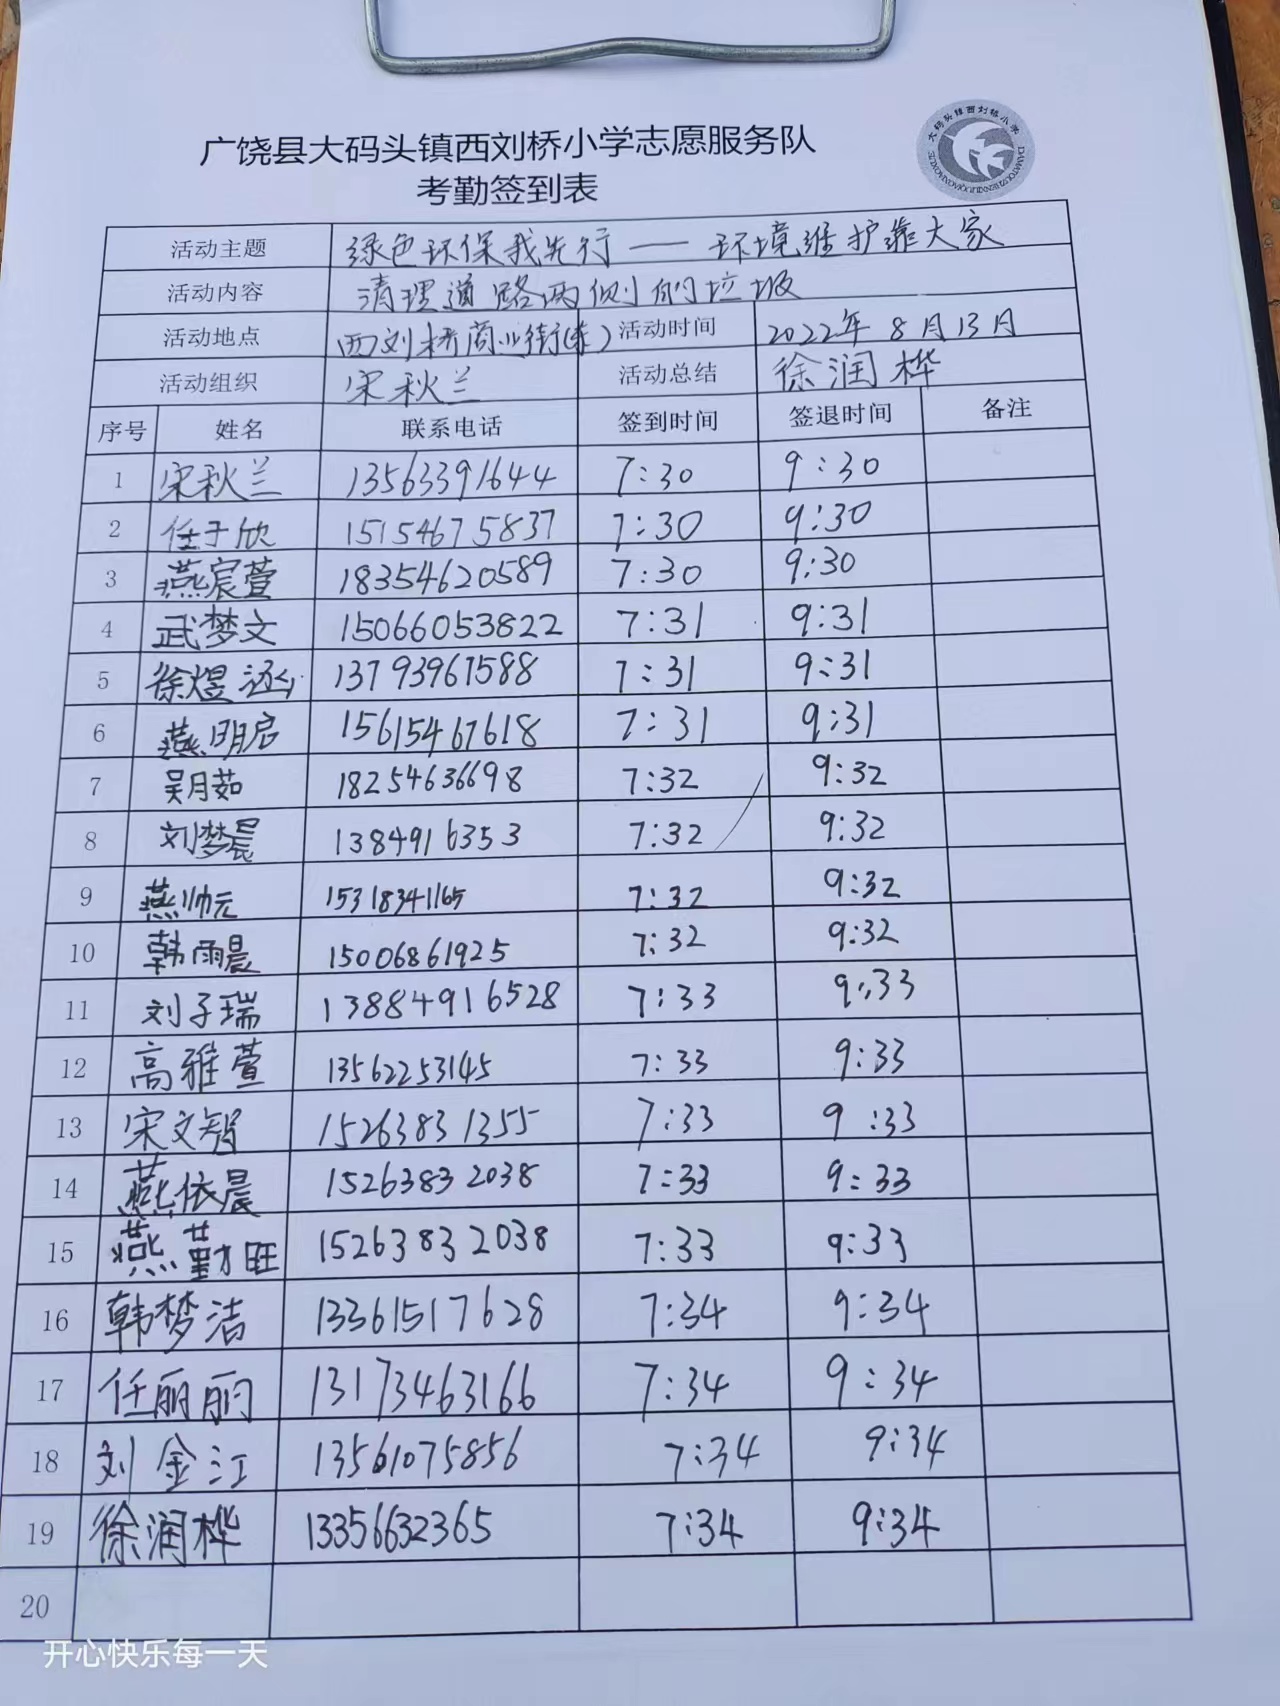 广饶县大码头镇西刘桥小学志愿服务队
考勤签到表
大码头镇西刘桥小学
活动主题 绿色环保我先行——环境维护靠大家
活动内容 清理道路两侧的垃圾
活动地点 西刘桥商业街(东) 活动时间 2022年8月13日
活动组织 宋秋兰 活动总结 徐润桦
序号 姓名 联系电话 签到时间 签退时间 备注
1 宋秋兰 13563391644 7:30 9:30
2 任于欣 15154675837 7:30 9:30
3 燕宸萱 18354620589 7:30 9:30
4 武梦文 15066053822 7:31 9:31
5 徐煜涵 13793961588 7:31 9:31
6 燕明启 15615467618 7:31 9:31
7 吴月茹 18254636698 7:32 9:32
8 刘梦晨 1384916353 7:32 9:32
9 燕帅元 15318341165 7:32 9:32
10 韩雨晨 15006861925 7:32 9:32
11 刘子瑞 13884916528 7:33 9:33
12 高雅萱 13562253145 7:33 9:33
13 宋文智 15263831355 7:33 9:33
14 燕依晨 15263832038 7:33 9:33
15 燕勤旺 15263832038 7:33 9:33
16 韩梦洁 13361517628 7:34 9:34
17 任丽丽 13173463166 7:34 9:34
18 刘金江 13561075856 7:34 9:34
19 徐润桦 13356632365 7:34 9:34
20
开心快乐每一天